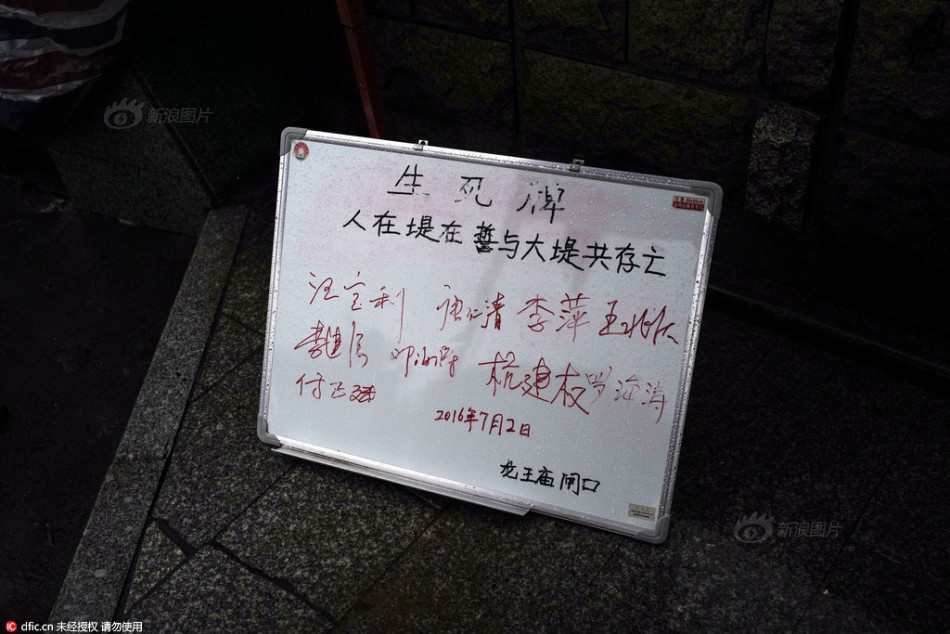 新浪图片
生死牌
人在堤在誓与大堤共存亡
汪宝利 唐仁清 李萍
杭建权 罗海涛
付正强
2016年7月2日
龙王庙闸口
新浪图片
dfic.cn 未经授权 请勿使用